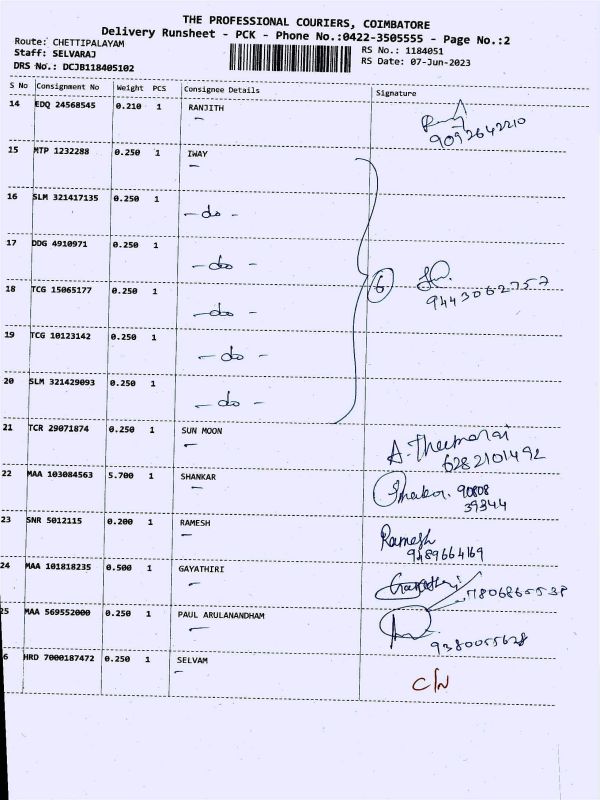 THE PROFESSIONAL COURIERS, COIMBATORE
Delivery Runsheet - PCK - Phone No.:0422-3505555 - Page No.:2
Route: CHETTIPALAYAM
Staff: SELVARAJ
DRS No.: DCJB118405102
RS No.: 1184051
RS Date: 07-Jun-2023
S No Consignment No Weight PCS Consignee Details Signature
14 EDQ 24568545 0.210 1 RANJITH
9092642210
15 MTP 1232288 0.250 1 IWAY
16 SLM 321417135 0.250 1
-do-
17 DDG 4910971 0.250 1
-do-
6
18 TCG 15065177 0.250 1 9443062757
-do-
19 TCG 10123142 0.250 1
-do-
20 SLM 321429093 0.250 1
-do-
21 TCR 29071874 0.250 1 SUN MOON
A. Theemarai
6282101492
22 MAA 103084563 5.700 1 SHANKAR
90808
39344
23 SNR 5012115 0.200 1 RAMESH
Ramesh
9489664169
24 MAA 101818235 0.500 1 GAYATHIRI
25 MAA 569552000 0.250 1 PAUL ARULANANDHAM
9380055628
6 HRD 7000187472 0.250 1 SELVAM
C/N